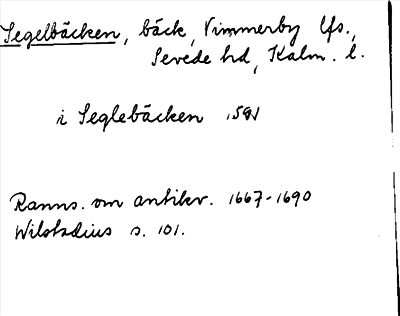 Segelbäcken, bäck, Vimmerby lfs.,
Sevede hd, Kalm. l.
i Seglebäcken
Ranns. om antikv. 1667-1690
Wilstadius s. 101.